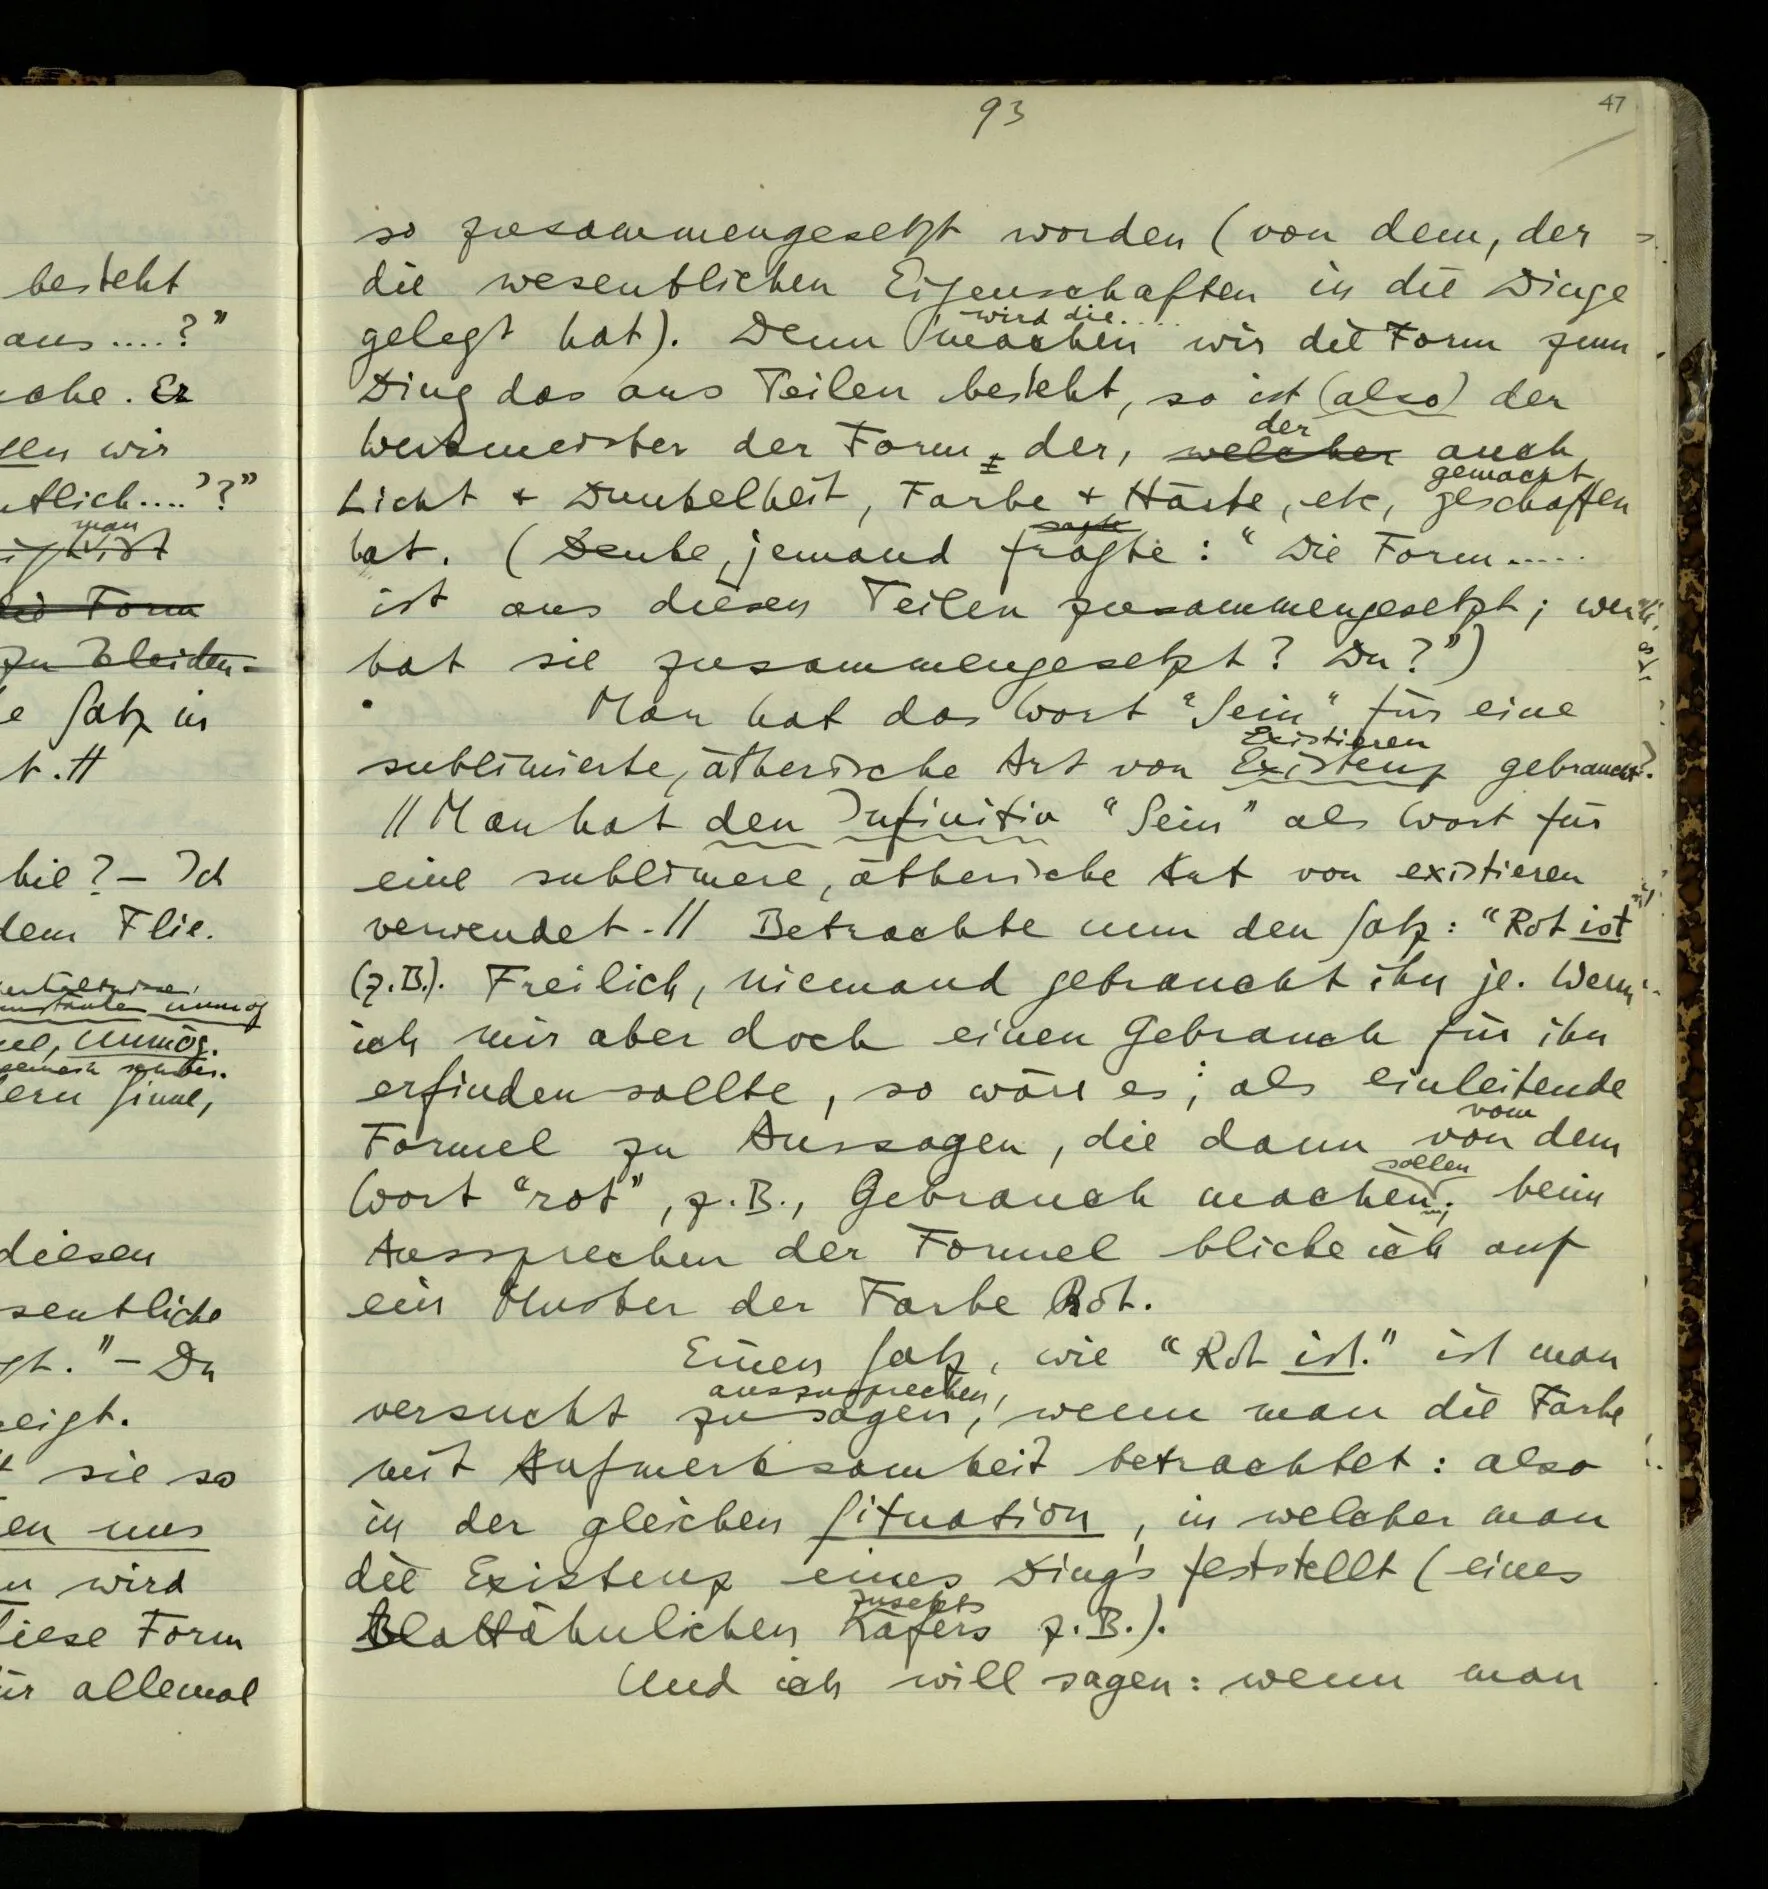 besteht
aus ....?"
ache. Er
gen wir
ntlich....'?"
man
ist
die Form
zu kleiden=
e Satz in
t.//
hie? – Ich
dem Flie.
unmög
unmög.
dern Sinne,
diesen
sentliche
gt." – Du
zeigt.
t sie so
en uns
n wird
diese Form
ür allemal
93
47
so zusammengesetzt worden (von dem, der
die wesentlichen Eigenschaften in die Dinge
wird die....
gelegt hat). Denn machen wir die Form zum
Ding das aus Teilen besteht, so ist (also) der
der
Werkmeister der Form = der, welcher auch
gemacht
Licht + Dunkelheit, Farbe + Härte, etc, geschaffen
sagte
hat. (Denke, jemand fragte: "Die Form.....
ist aus diesen Teilen zusammengesetzt; wer
hat sie zusammengesetzt? Du?")
Man hat das Wort "Sein" für eine
Existieren
sublimierte, ätherische Art von Existenz gebraucht.
//Man hat den Infinitiv "Sein" als Wort für
eine sublimere, ätherische Art von existieren
verwendet.// Betrachte nun den Satz: "Rot ist"
(z.B.). Freilich, niemand gebraucht ihn je. Wenn
ich mir aber doch einen Gebrauch für ihn
erfinden sollte, so wäre es; als einleitende
vom
Formel zu Aussagen, die dann von dem
sollen
Wort "rot", z.B., Gebrauch machen; beim
Aussprechen der Formel blicke ich auf
ein Muster der Farbe Rot.
Einen Satz, wie "Rot ist." ist man
auszusprechen,
versucht zu sagen, wenn man die Farbe
mit Aufmerksamkeit betrachtet: also
in der gleichen Situation, in welcher man
die Existenz eines Dings feststellt (eines
Insekts
Blattähnlichen Käfers z.B.).
Und ich will sagen: wenn man